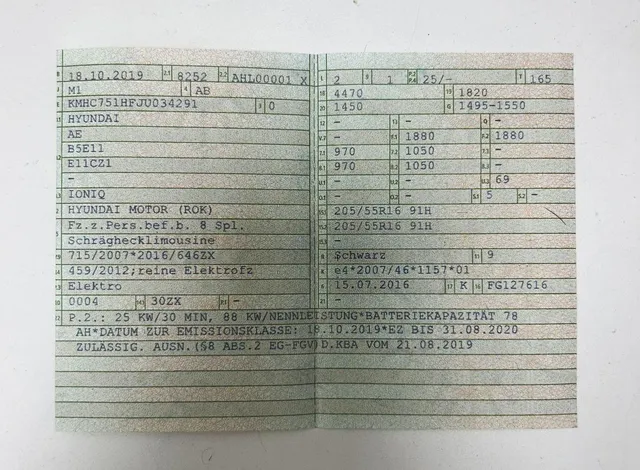 18.10.2019 8252 AHL00001 X
M1 AB
KMHC751HFJU034291 0
HYUNDAI
AE
B5E11
E11CZ1
-
IONIQ
HYUNDAI MOTOR (ROK)
Fz.z.Pers.bef.b. 8 Spl.
Schräghecklimousine
715/2007*2016/646ZX
459/2012;reine Elektrofz
Elektro
0004 30ZX -
2 1 25/- 165
4470 1820
1450 1495-1550
- - -
- 1880 1880
970 1050 -
970 1050 -
- - 69
- - 5 -
205/55R16 91H
205/55R16 91H
-
Schwarz 9
e4*2007/46*1157*01
15.07.2016 K FG127616
-
P.2.: 25 KW/30 MIN, 88 KW/NENNLEISTUNG*BATTERIEKAPAZITÄT 78
AH*DATUM ZUR EMISSIONSKLASSE: 18.10.2019*EZ BIS 31.08.2020
ZULÄSSIG. AUSN.(§8 ABS.2 EG-FGV)D.KBA VOM 21.08.2019